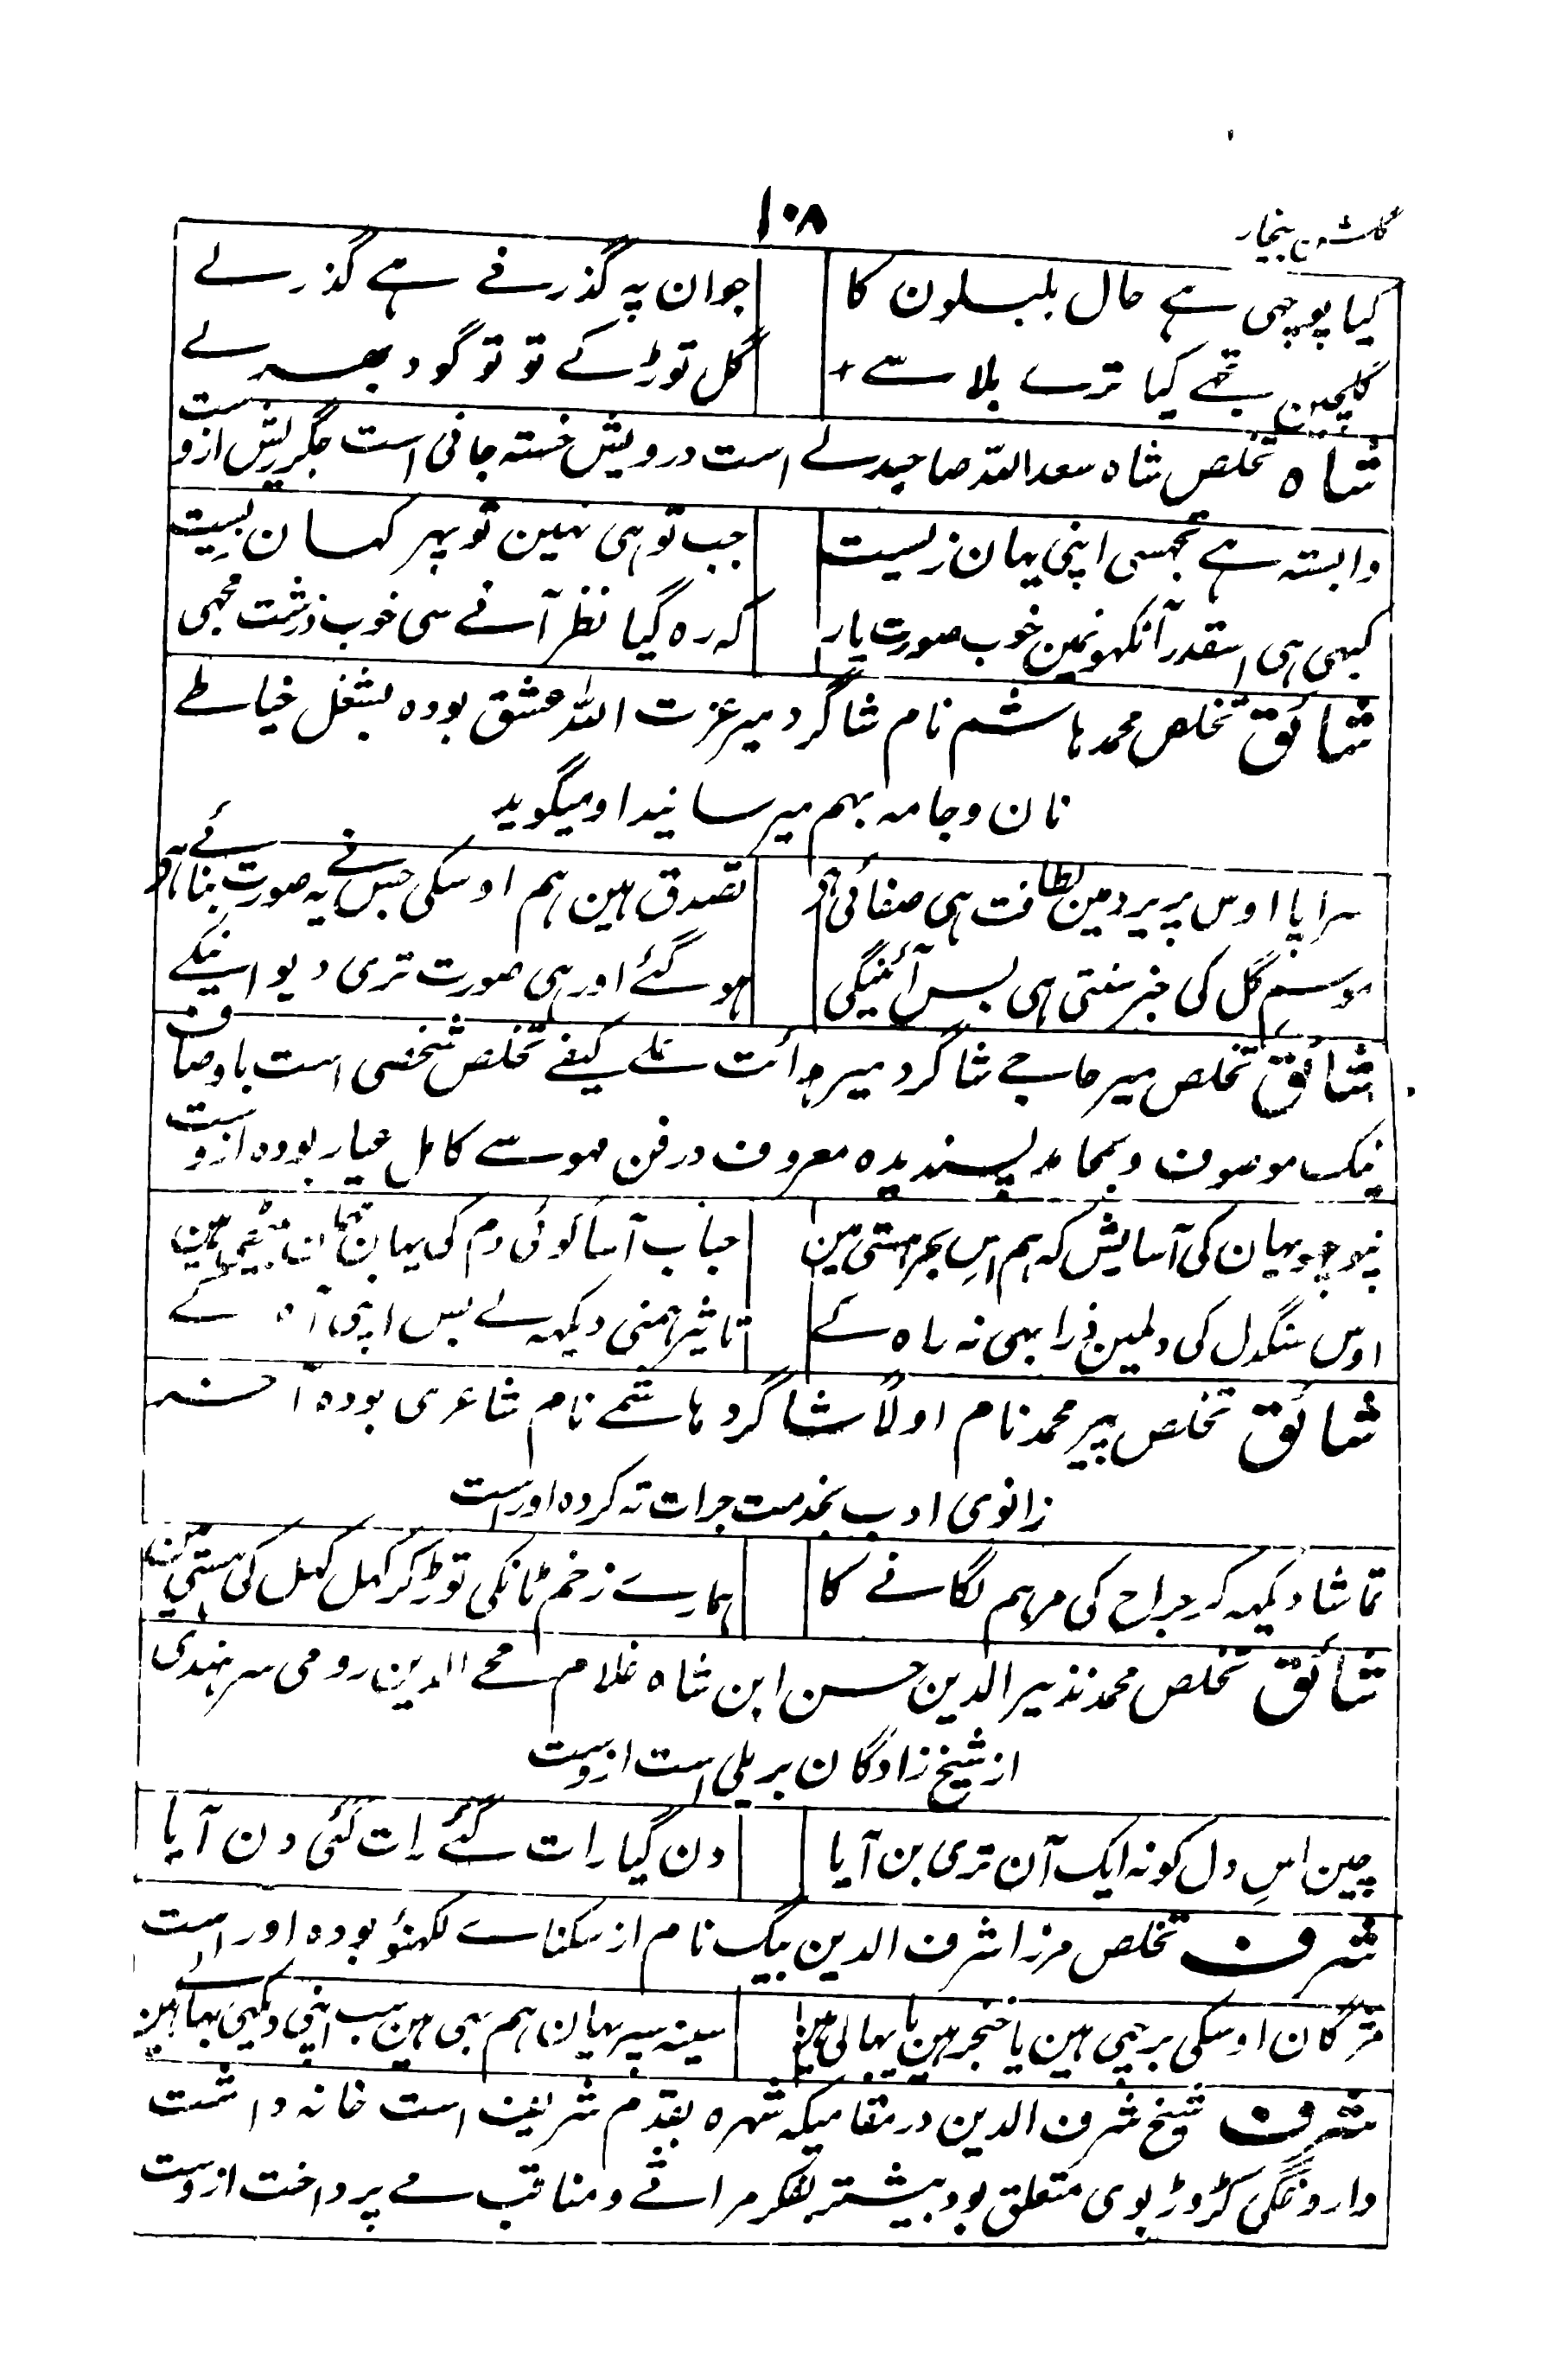 گلشن بیخار
۱۰۸
کیا پوچھی ہے حال بلبلون کا جوان پہ گذرنے ہے گذرلے
گلچین تجھے کیا ترے بلا سے + گل توڑ کے تو تو گود بھرلے
شاہ تخلص شاہ سعد اللہ صاحبدلے است درویش خستہ جانی است جگر ریش ازوست
وابستہ ہے تجھسی اپنی یہان زیست جب تو ہی نہین تو پہر کہان زیست
کبھی ہی اسقدر آنکھونمین خوب صورت یار کہ رہ گیا نظر آنے سی خوب و زشت مجھی
شائق تخلص محمد ہاشم نام شاگرد میر عزت اللہ عشق بودہ بشغل خیاطے
نان و جامہ بہم میرسانید او میگوید
سراپا اوس پریرو مین لطافت ہی صفائی ہے تصدق ہین ہم اوسکی جس نے یہ صورت بنائے ہے
موسم گل کی خبر سنتی ہی بس آئینگی ہو گئے اور ہی صورت تری دیوانیکے
شائق تخلص میر حاجے شاگرد میر جرأت علے کیفے تخلص شخصی است باوصاف
نیک موصوف و بمحامد پسندیدہ معروف در فن موسے کامل عیار بودہ ازوست
نپوچھو یہان کی آسایش کہ ہم اس بحر ہستی مین حباب آسا کوئی دم کی یہان مہمان بیٹھی ہین
اوس سنگدل کی دلمین ذرا بھی نہ راہ کے تاثیر ہمنی دیکھہ لے بس اپنی آہ کے
شائق تخلص پیر محمد نام اولاً شاگرد ہاشمے نام شاعری بودہ آخر
زانوی ادب بخدمت جرات تہ کردہ اوراست
تماشا دیکھہ کر جراح کی مرہم لگانے کا ہمارے زخم ٹانکی توڑ کر کھل کھل کی ہستی ہین
شائق تخلص محمد نذیر الدین حسن ابن شاہ غلام محے الدین رومی سرہندی
از شیخ زادگان بریلی است ازوست
چین اس دل کو نہ ایک آن تری بن آیا دن گیا رات گئے رات گئی دن آیا
شرف تخلص مرزا شرف الدین بیگ نام از سکناے لکھنؤ بودہ اوراست
مژگان اوسکی برچھی ہین یا خنجر ہین یا بھالی ہین سینہ سپر یہان ہم بھی ہین سب اپنی دیکھی بھالے ہین
شرف شیخ شرف الدین در مقامیکہ شہرہ بقدم شریف است خانہ داشت
داروغگی کڑوڑ بوی متعلق بود بیشتر بفکر مراثے و مناقب مے پرداخت ازوست